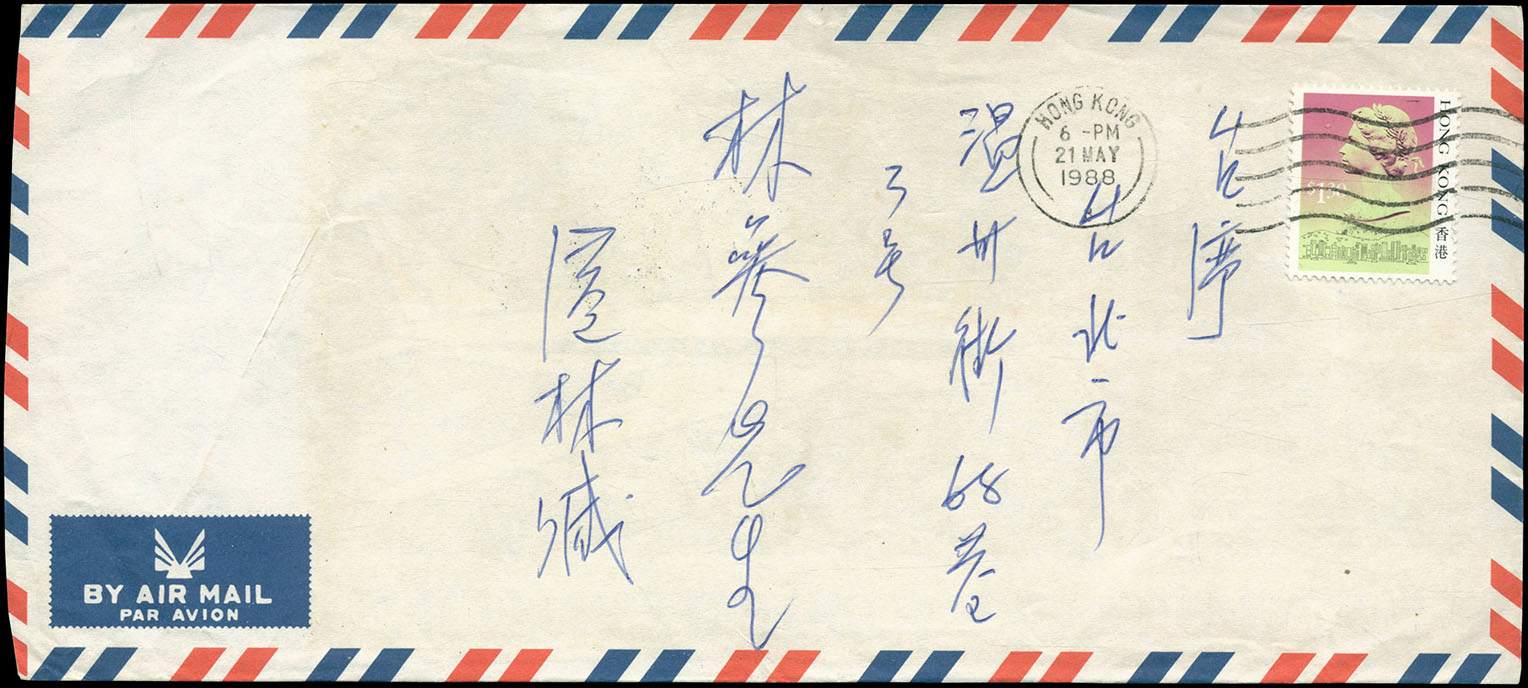 HONG KONG 香港
$1.30
HONG KONG
6 -PM
21 MAY
1988
台湾
台北市
温州街68巷
3号
林 先生
港林缄
BY AIR MAIL
PAR AVION